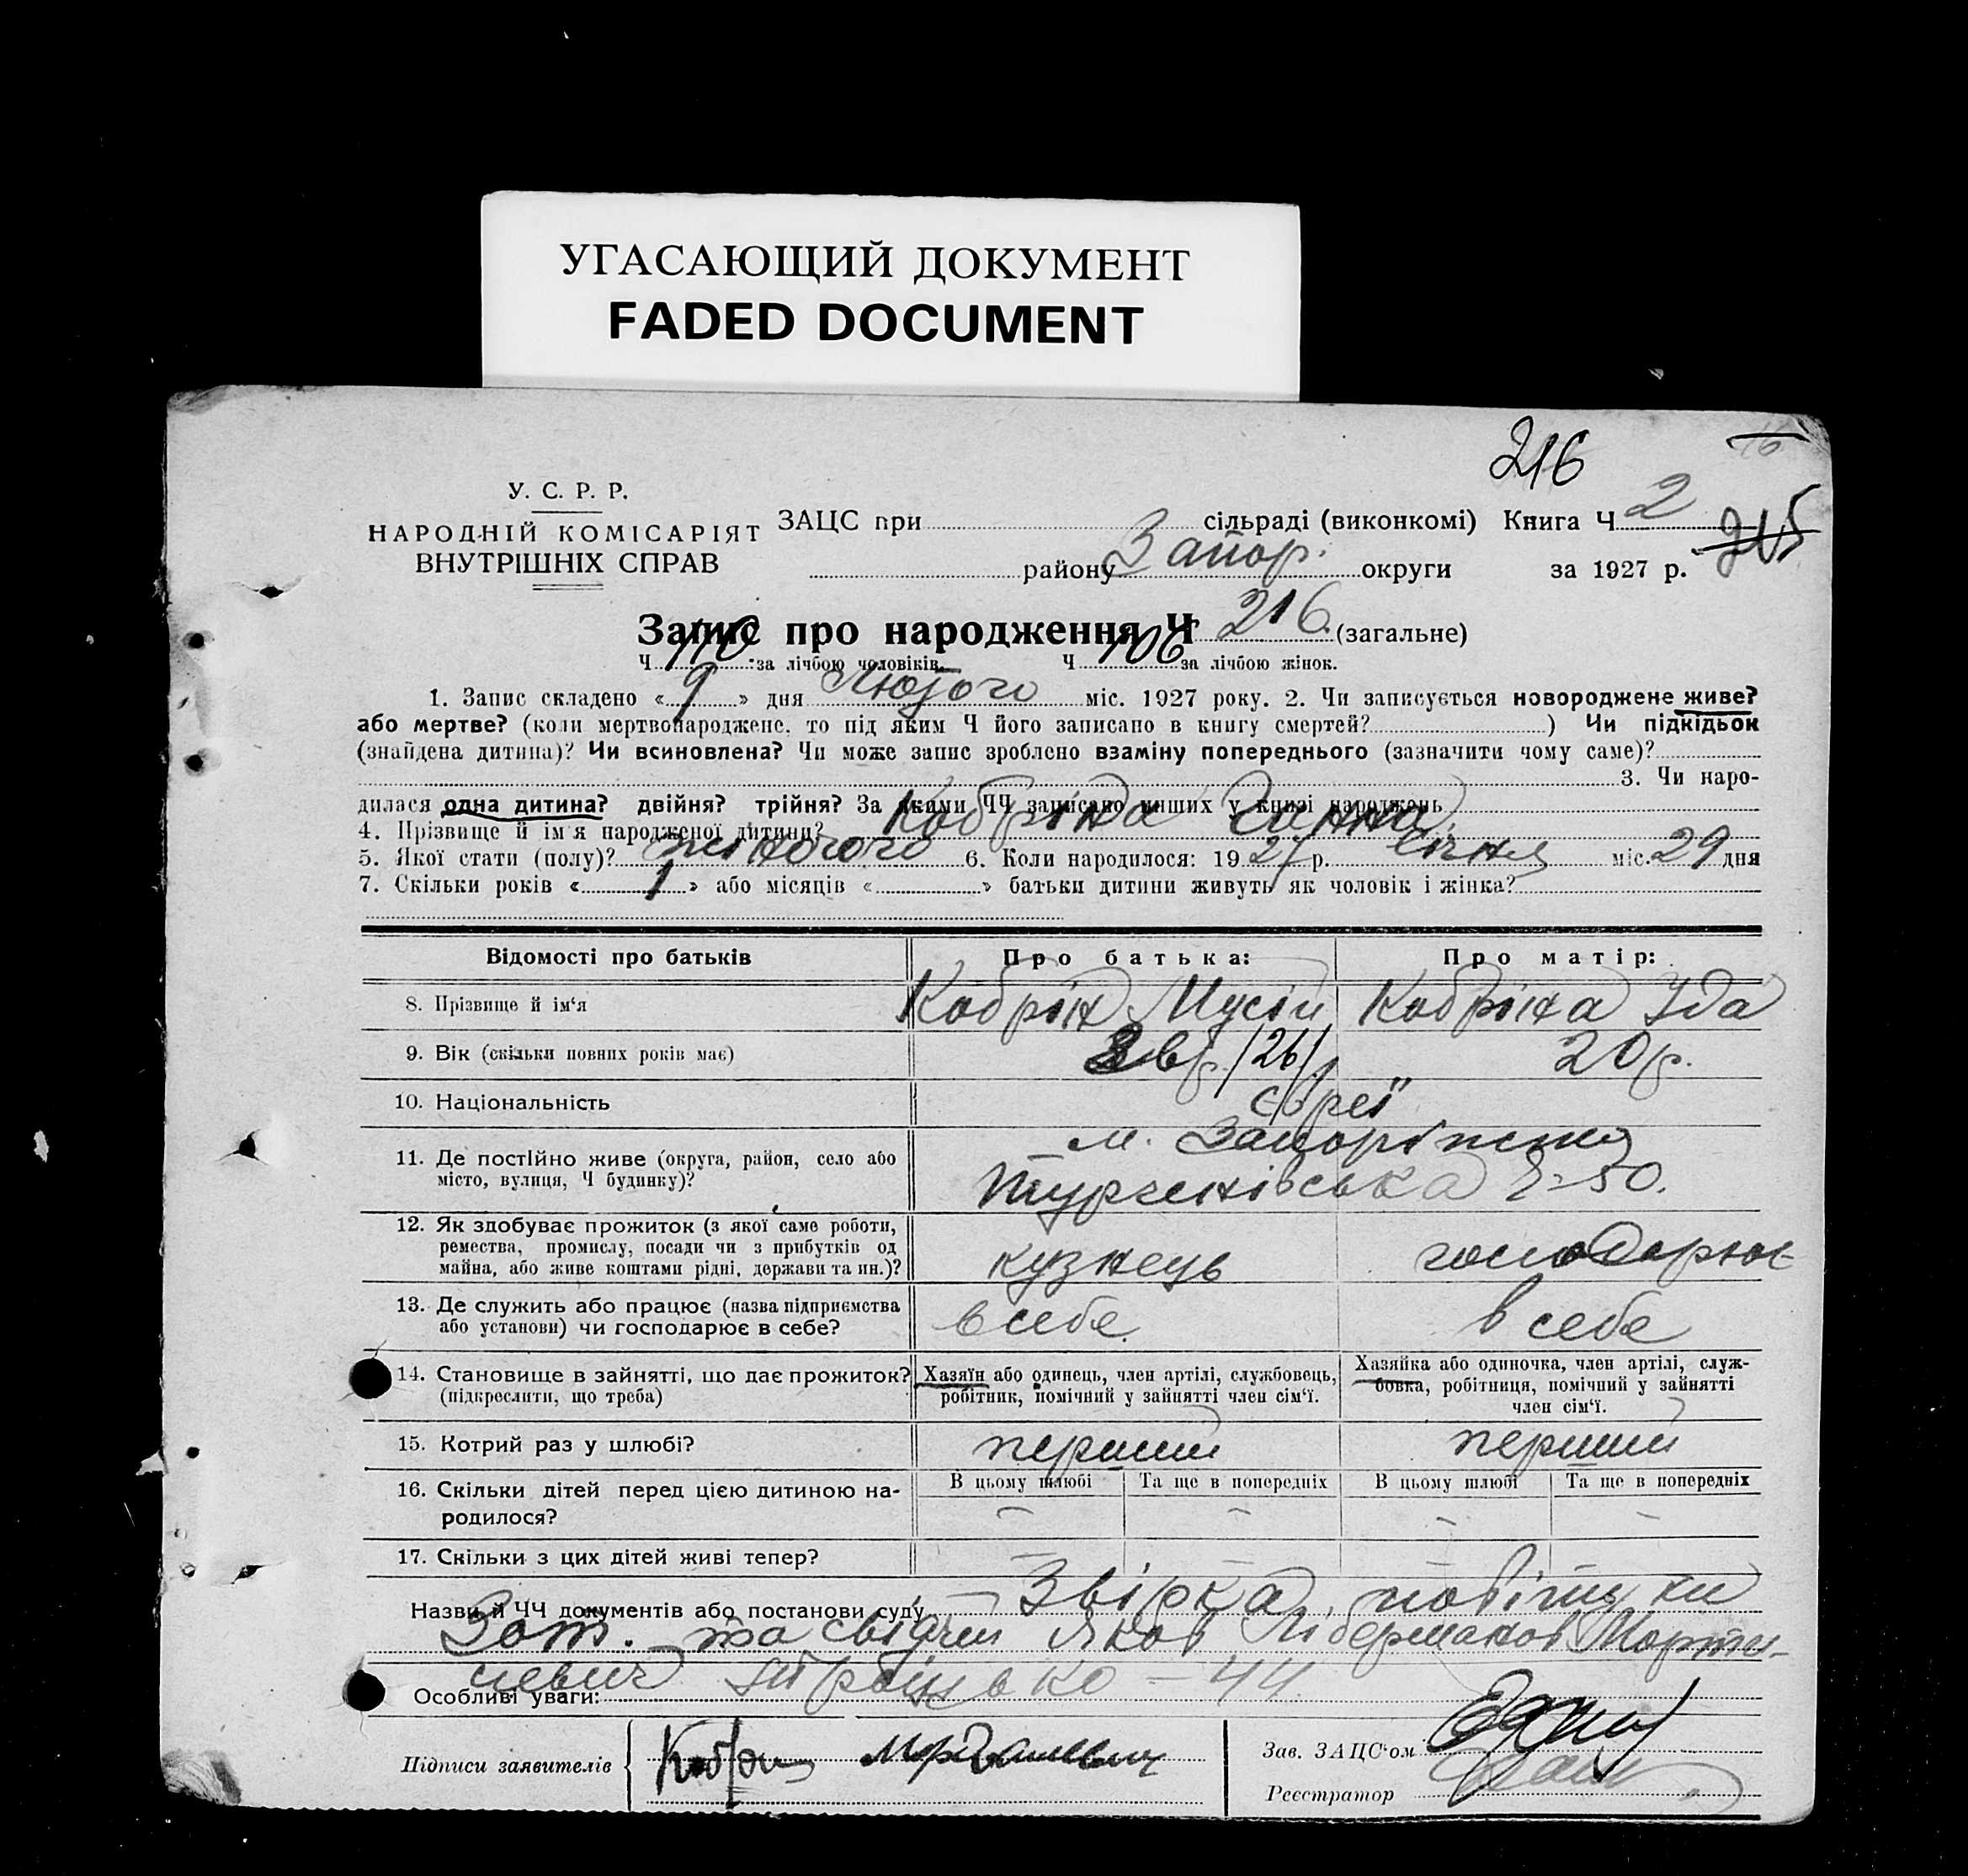 УГАСАЮЩИЙ ДОКУМЕНТ
FADED DOCUMENT
216
16
У. С. Р. Р.
НАРОДНІЙ КОМІСАРІЯТ
ВНУТРІШНІХ СПРАВ
ЗАЦС при сільраді (виконкомі) Книга Ч 2
215
району Запор. округи за 1927 р.
Запис про народження Ч 216 (загальне)
Ч 110 за лічбою чоловіків. Ч 106 за лічбою жінок.
1. Запис складено « 9 » дня Лютого міс. 1927 року. 2. Чи записується новороджене живе?
або мертве? (коли мертвонароджене, то під яким Ч його записано в книгу смертей? ) Чи підкідьок
(знайдена дитина)? Чи всиновлена? Чи може запис зроблено взаміну попереднього (зазначити чому саме)?
3. Чи наро-
дилася одна дитина? двійня? трійня? За якими ЧЧ записано инших у книзі народжень
4. Прізвище й ім'я народженої дитини? Кобріна Ганна
5. Якої стати (полу)? жіночого 6. Коли народилося: 1927 р. січня міс. 29 дня
7. Скільки років « 1 » або місяців « » батьки дитини живуть як чоловік і жінка?
Відомості про батьків Про батька: Про матір:
8. Прізвище й ім'я Кобрін Мусій Кобріна Іда
9. Вік (скільки повних років має) /26/ 20 р.
10. Національність Євреї
11. Де постійно живе (округа, район, село або м. Запоріжжя
місто, вулиця, Ч будинку)? Тургенівська 50.
12. Як здобуває прожиток (з якої саме роботи,
ремества, промислу, посади чи з прибутків од
майна, або живе коштами рідні, держави та ин.)? кузнець господарює
13. Де служить або працює (назва підприємства
або установи) чи господарює в себе? в себе. в себе
14. Становище в зайнятті, що дає прожиток? Хазяїн або одинець, член артілі, службовець, Хазяйка або одиночка, член артілі, служ-
(підкреслити, що треба) робітник, помічний у зайнятті член сім'ї. бовка, робітниця, помічний у зайнятті
член сім'ї.
15. Котрий раз у шлюбі? перший перший
16. Скільки дітей перед цією дитиною на- В цьому шлюбі Та ще в попередніх В цьому шлюбі Та ще в попередніх
родилося? – – – –
17. Скільки з цих дітей живі тепер? – – – –
Назви й ЧЧ документів або постанови суду Звірка
та свідчен Яков Ліберманов
44
Особливі уваги:
Підписи заявителів Кобрин
Зав. ЗАЦС'ом
Реєстратор